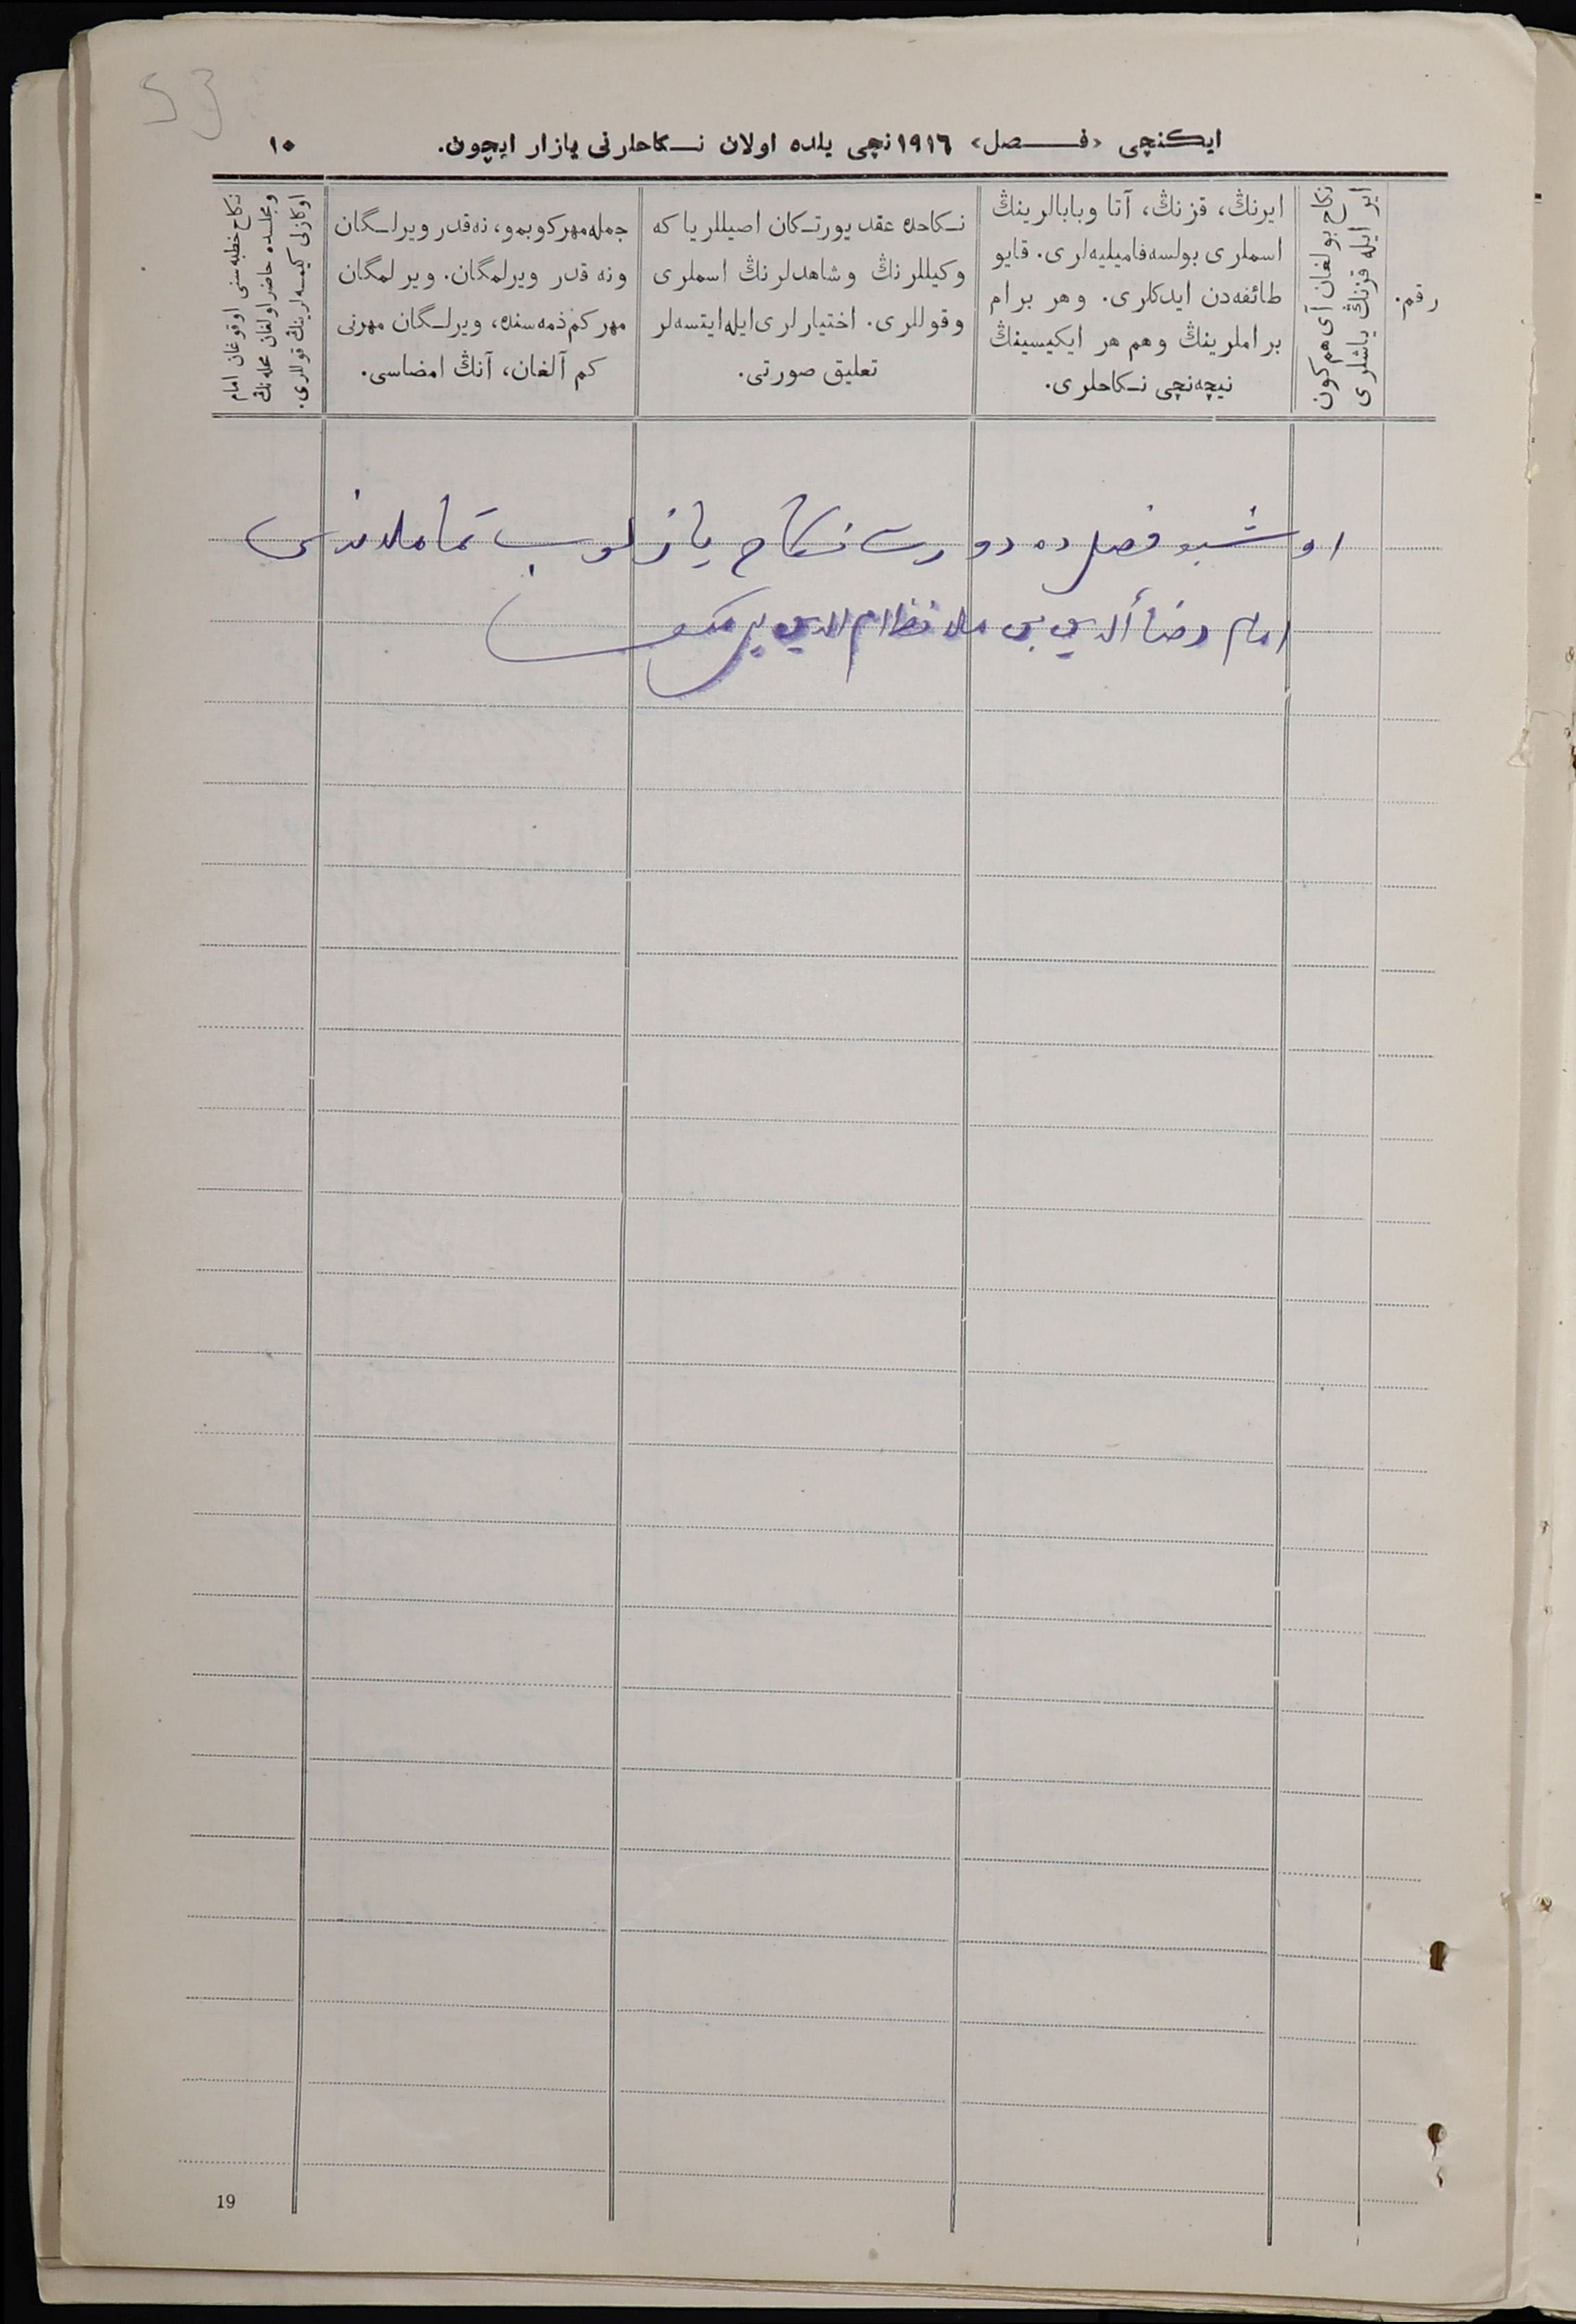 53
ايكنچى «فصل» ١٩١٦نچى يلده اولان نكاحلرنى يازار ايچون. ١٠
رقم.
نكاح بولغان آى هم كون
اير ايله قزنڭ ياشلرى
ايرنڭ، قزنڭ، آتا وبابالرينڭ
اسملرى بولسه فاميليه‌لرى. قايو
طائفه‌دن ايدكلرى. وهر برام
براملرينڭ وهم هر ايكيسينڭ
نيچه‌نچى نكاحلرى.
نكاحده عقد يورتكان اصيللر يا كه
وكيللرنڭ وشاهدلرنڭ اسملرى
وقوللرى. اختيارلرى ايله ايتسه‌لر
تعليق صورتى.
جمله مهر كوبمو، نه‌قدر ويرلگان
ونه قدر ويرلمگان. ويرلمگان
مهر كم ذمه‌سنده، ويرلگان مهرنى
كم آلغان، آنڭ امضاسى.
نكاح خطبه‌سنى اوقوغان امام
ومجلسده حاضر اولغان محله‌نڭ
اوكازلى كيمسه‌لرينڭ قوللرى.
اوشبو فصلده دورت نكاح يازلوب تماملاندى
امام رضاألدين بن ملا نظام الدين
19